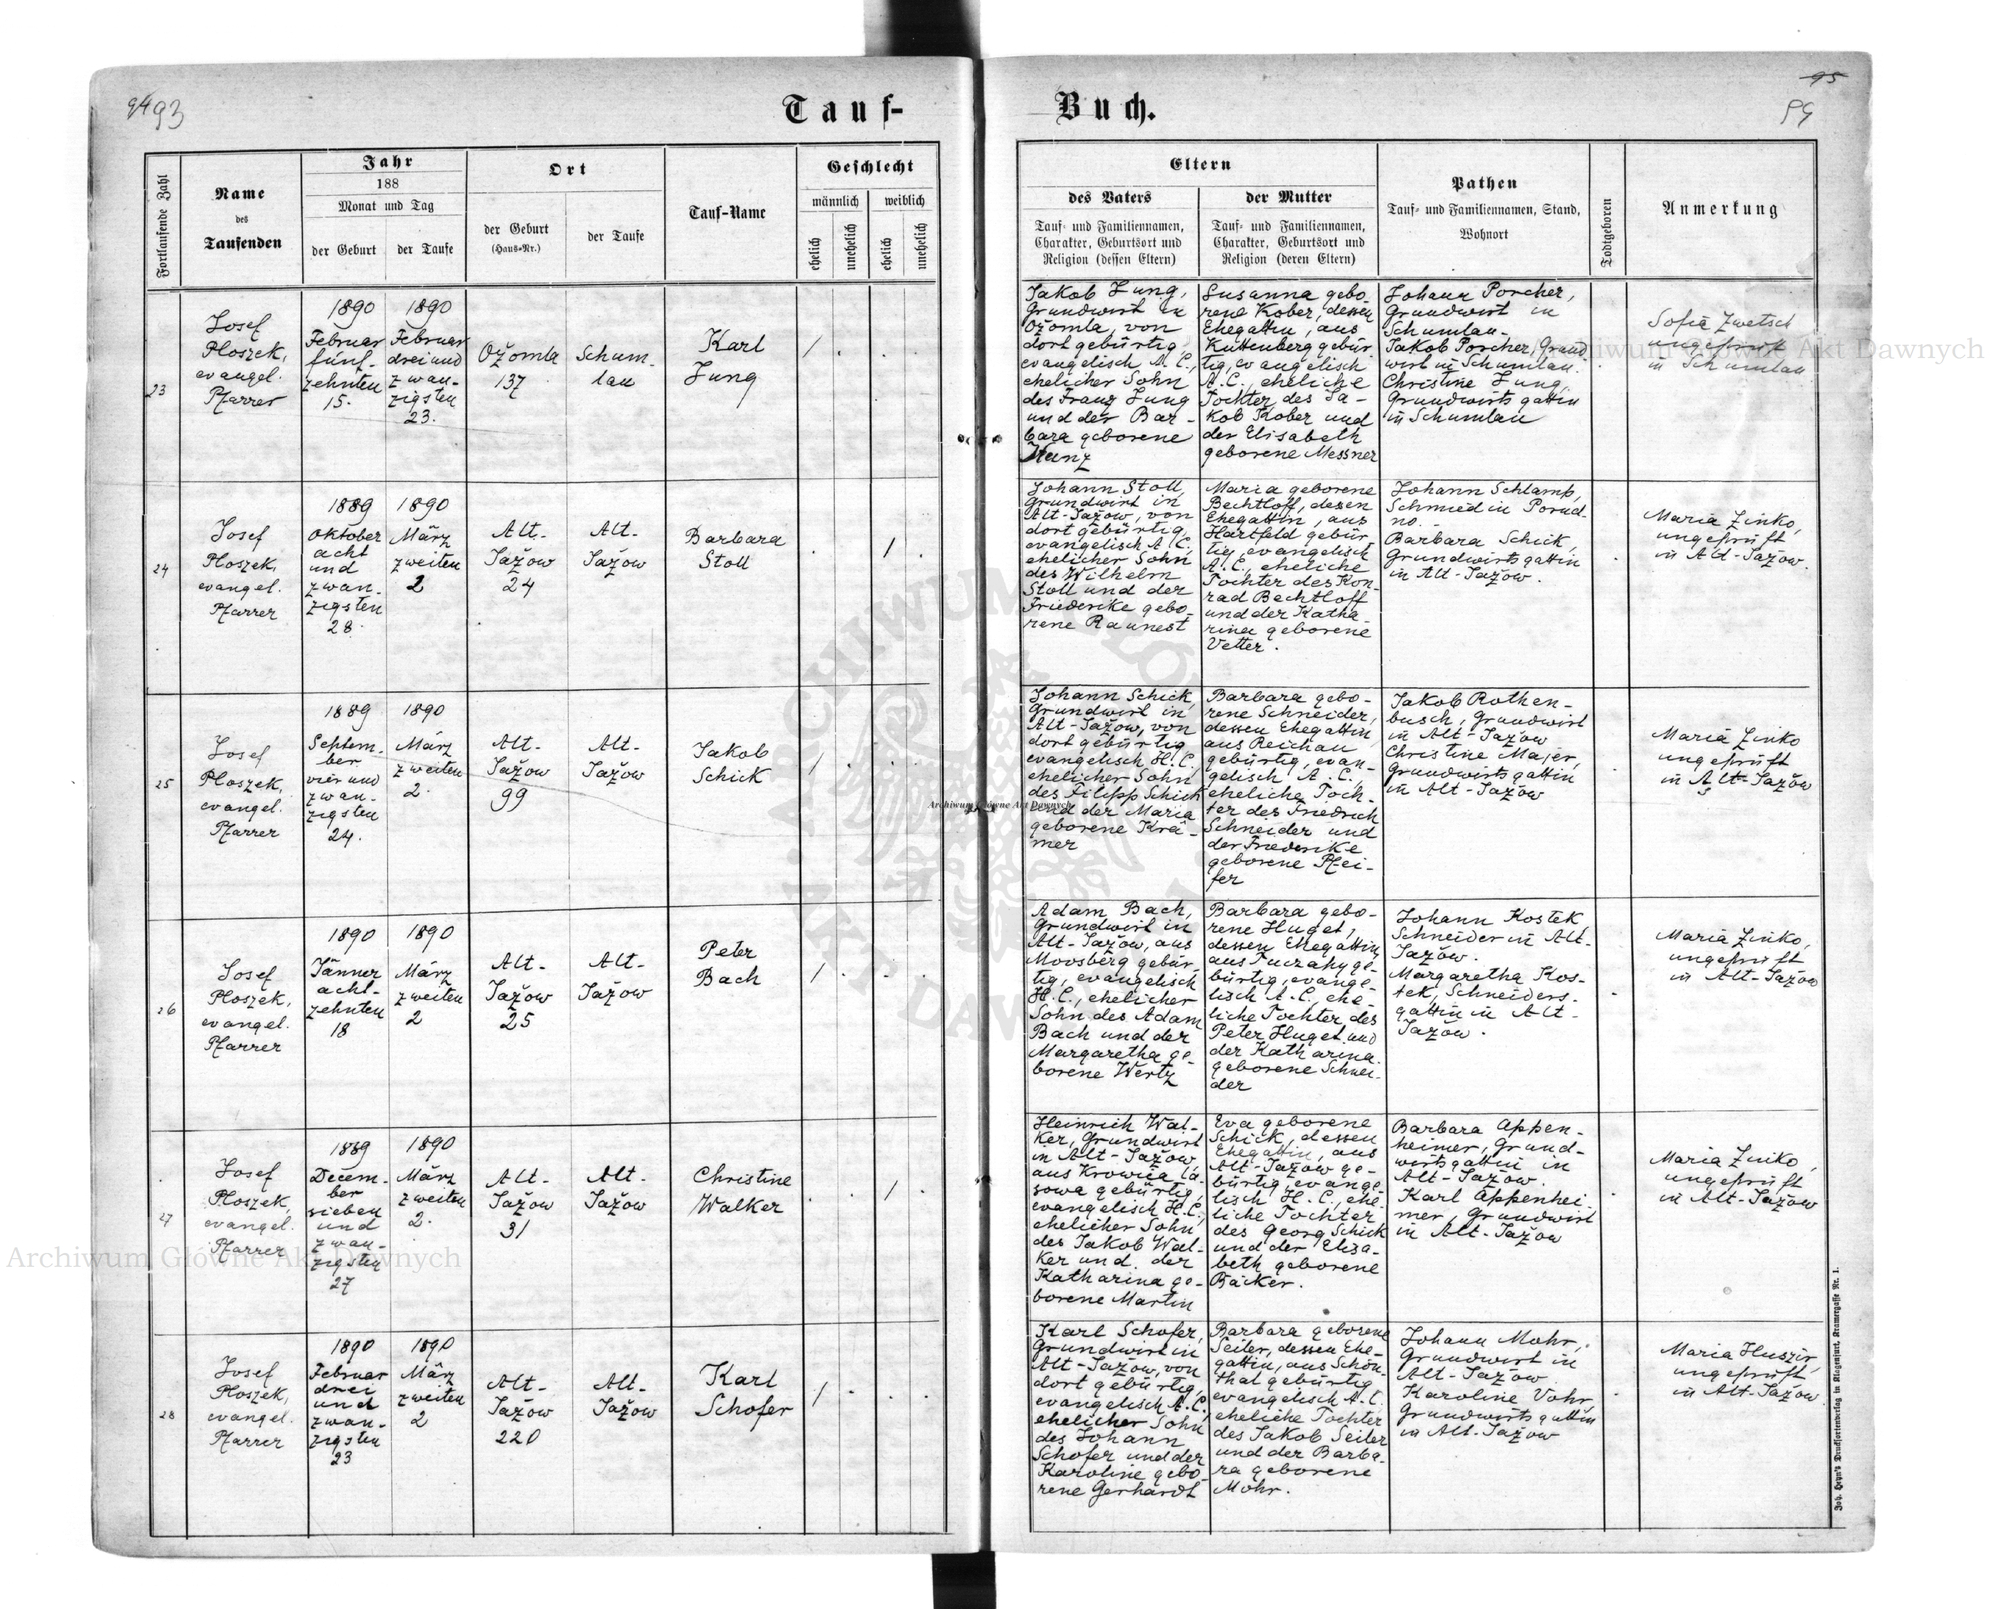 94 93
Tauf-
Buch.
95
Fortlaufende Zahl
Name
des
Taufenden
Jahr
188
Monat und Tag
der Geburt
der Taufe
Ort
der Geburt
(Haus-Nr.)
der Taufe
Tauf-Name
Geschlecht
männlich
weiblich
ehelich
unehelich
ehelich
unehelich
Eltern
des Vaters
Tauf- und Familiennamen,
Charakter, Geburtsort und
Religion (dessen Eltern)
der Mutter
Tauf- und Familiennamen,
Charakter, Geburtsort und
Religion (deren Eltern)
Pathen
Tauf- und Familiennamen, Stand,
Wohnort
Todtgeboren
Anmerkung
23
Josef
Ploszek,
evangel.
Pfarrer
1890
Februar
fünf-
zehnten
15.
1890
Februar
drei und
zwan-
zigsten
23.
Ožomla
137
Schum-
lau
Karl
Jung
/
Jakob Jung,
Grundwirt in
Ožomla, von
dort gebürtig
evangelisch A.C.,
ehelicher Sohn
des Franz Jung
und der Bar-
bara geborene
Kunz
Susanna gebo-
rene Kober, dessen
Ehegattin, aus
Kuttenberg gebür
tig, evangelisch
A.C., eheliche
Tochter des Ja-
kob Kober und
der Elisabeth
geborene Messner
Johann Porcher,
Grundwirt in
Schumlau-
Jakob Porcher, Grund
wirt in Schumlau.
Christine Jung,
Grundwirts gattin
in Schumlau
Sofia Zwetsch
ungeprüft
in Schumlau
24
Josef
Ploszek,
evangel.
Pfarrer
1889
Oktober
acht
und
zwan-
zigsten
28.
1890
März
zweiten
2
Alt-
Jažow
24
Alt-
Jažow
Barbara
Stoll
/
Johann Stoll,
Grundwirt in
Alt-Jažow, von
dort gebürtig,
evangelisch A.C.
ehelicher Sohn
des Wilhelm
Stoll und der
Friederike gebo-
rene Raunest
Maria geborene
Bechtloff, dessen
Ehegattin, aus
Hartfeld gebür
tig, evangelisch
A.C., eheliche
Tochter des Kon-
rad Bechtloff
und der Katha-
rina geborene
Vetter.
Johann Schlamp,
Schmied in Porud-
no.
Barbara Schick,
Grundwirtsgattin
in Alt-Jažow.
Maria Zinko,
ungeprüft
in Alt-Jažow.
25
Josef
Ploszek,
evangel.
Pfarrer
1889
Septem-
ber
vier und
zwan-
zigsten
24.
1890
März
zweiten
2.
Alt-
Jažow
99
Alt-
Jažow
Jakob
Schick
/
Johann Schick,
Grundwirt in
Alt-Jažow, von
dort gebürtig
evangelisch H.C.,
ehelicher Sohn
des Filipp Schick
und der Maria
geborene Krä-
mer
Barbara gebo-
rene Schneider,
dessen Ehegattin
aus Reichau
gebürtig, evan-
gelisch A.C.,
eheliche Toch-
ter des Friedrich
Schneider und
der Friederike
geborene Pfei-
fer
Jakob Rothen-
busch, Grundwirt
in Alt-Jažow
Christine Majer,
Grundwirts gattin
in Alt-Jažow
Maria Zinko
ungeprüft
in Alt-Jažow
26
Josef
Ploszek,
evangel.
Pfarrer
1890
Jänner
acht-
zehnten
18
1890
März
zweiten
2
Alt-
Jažow
25
Alt-
Jažow
Peter
Bach
/
Adam Bach,
Grundwirt in
Alt-Jažow, aus
Moosberg gebür
tig, evangelisch
H.C., ehelicher
Sohn des Adam
Bach und der
Margaretha ge-
borene Wertz
Barbara gebo-
rene Huget,
dessen Ehegattin,
aus Tuczahy ge-
bürtig, evange-
lisch A.C., ehe-
liche Tochter des
Peter Huget und
der Katharina
geborene Schnei-
der
Johann Kostek
Schneider in Alt-
Jažow.
Margaretha Kos-
tek, Schneiders-
gattin in Alt-
Jažow.
Maria Zinko,
ungeprüft
in Alt-Jažow
27
Josef
Ploszek,
evangel.
Pfarrer
1889
Decem-
ber
sieben
und
zwan-
zigsten
27
1890
März
zweiten
2.
Alt-
Jažow
31
Alt-
Jažow
Christine
Walker
/
Heinrich Wal-
ker, Grundwirt
in Alt-Jažow,
aus Krowica la-
sowa gebürtig,
evangelisch H.C.,
ehelicher Sohn
des Jakob Wal-
ker und der
Katharina ge-
borene Martin
Eva geborene
Schick, dessen
Ehegattin, aus
Alt-Jažow ge-
bürtig, evange-
lisch H.C., ehe-
liche Tochter
des Georg Schick
und der Elisa-
beth geborene
Bäcker.
Barbara Appen-
heimer, Grund-
wirtsgattin in
Alt-Jažow.
Karl Appenhei-
mer, Grundwirt
in Alt-Jažow
Maria Zinko,
ungeprüft
in Alt-Jažow
28
Josef
Ploszek,
evangel.
Pfarrer
1890
Februar
drei
und
zwan-
zigsten
23
1890
März
zweiten
2
Alt-
Jažow
220
Alt-
Jažow
Karl
Schofer
/
Karl Schofer,
Grundwirt in
Alt-Jažow, von
dort gebürtig,
evangelisch A.C.,
ehelicher Sohn
des Johann
Schofer und der
Karoline gebo-
rene Gerhardt
Barbara geborene
Seiler, dessen Ehe-
gattin, aus Schön-
that gebürtig
evangelisch A.C.
eheliche Tochter
des Jakob Seiler
und der Barba-
ra geborene
Mohr.
Johann Mohr,
Grundwirt in
Alt-Jažow.
Karoline Vohr
Grundwirts gattin
in Alt-Jažow
Maria Huszir,
ungeprüft
in Alt-Jažow
Joh. Heyn's Drucksortenverlag in Klagenfurt, Kramergasse Nr. 1.
Archiwum Główne Akt Dawnych
Archiwum Główne Akt Dawnych
Archiwum Główne Akt Dawnych